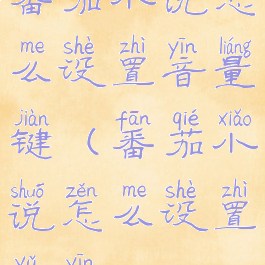 番茄小说怎
me shè zhì yīn liáng
么设置音量
jiàn fān qié xiǎo
键（番茄小
shuō zěn me shè zhì
说怎么设置
yǔ yīn